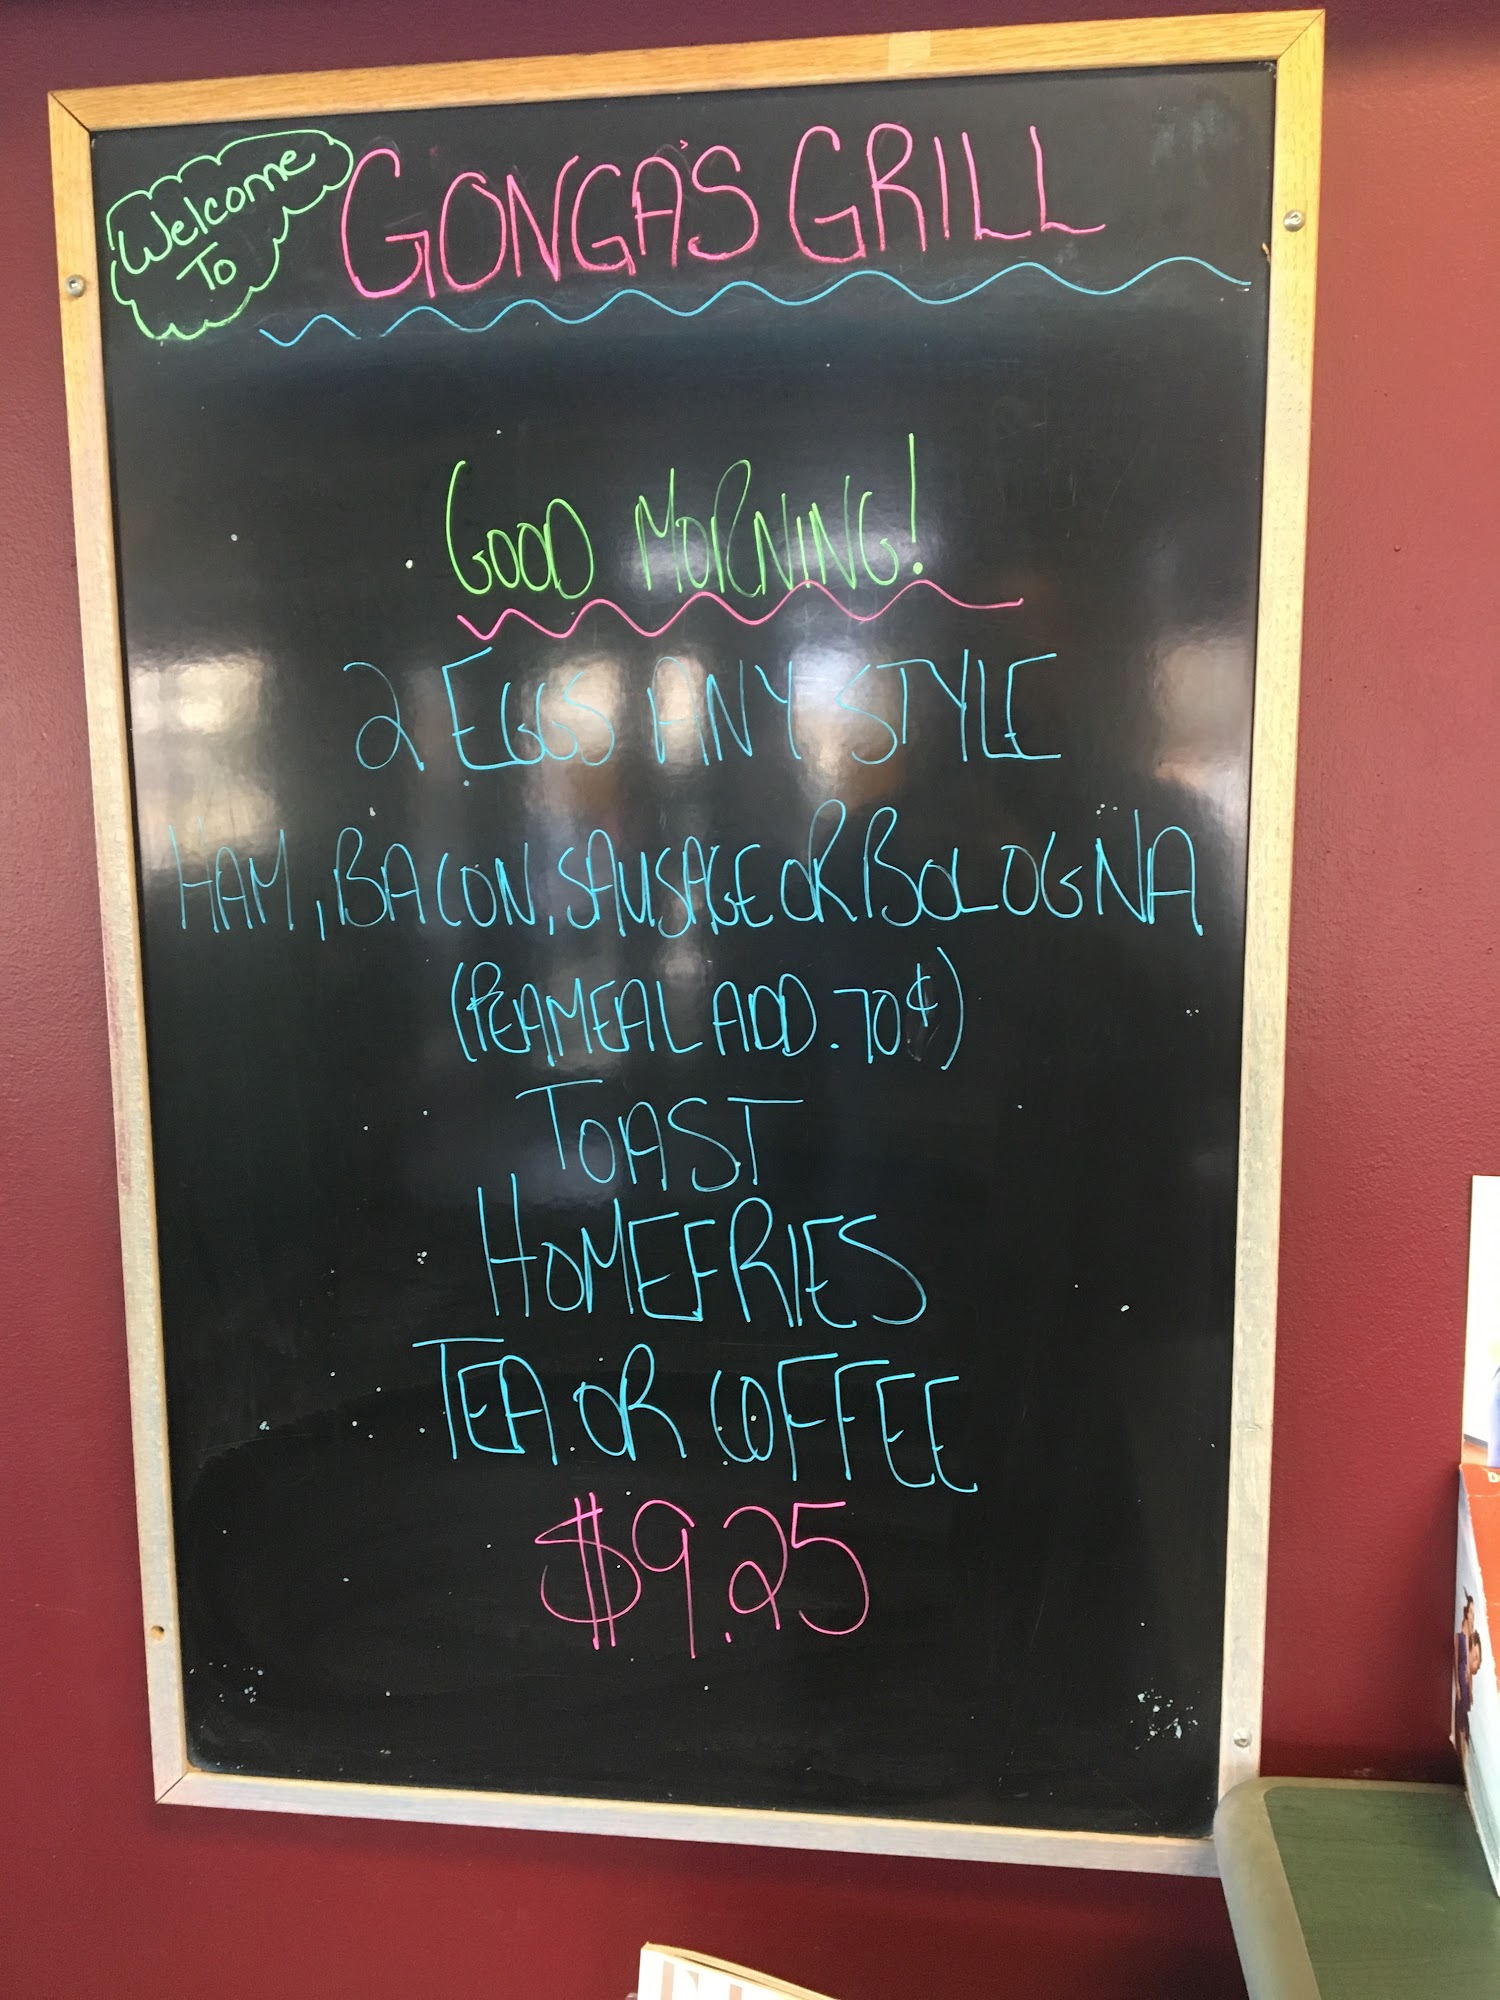 Welcome
To
GONGA'S GRILL
GOOD MORNING!
2 EGGS ANY STYLE
HAM, BACON, SAUSAGE OR BOLOGNA
(PEAMEAL ADD .70¢)
TOAST
HOMEFRIES
TEA OR COFFEE
$9.25